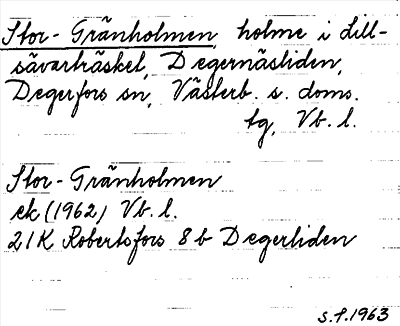 Stor-Gränholmen, holme i Lill-
sävarträsket, Degernäsliden,
Degerfors sn, Västerb. s. doms.
tg, Vb. l.
Stor-Gränholmen
ek (1962) Vb. l.
21K Robertsfors 8b Degerliden
S.F. 1963